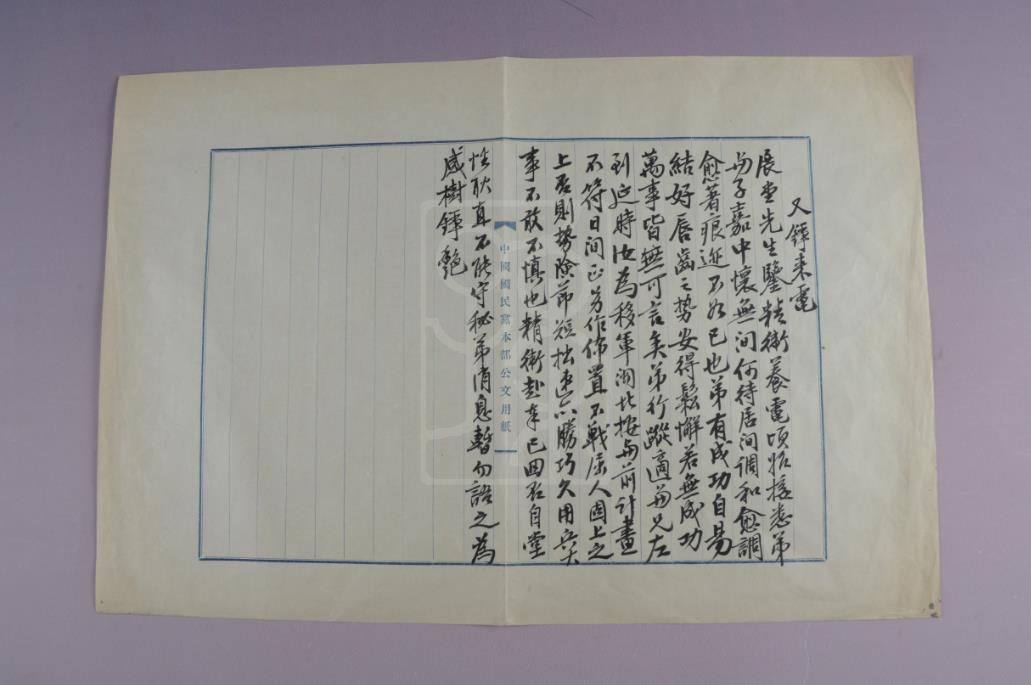 又鐸来電
展堂先生鑒精衛養電頃始接悉弟
与子嘉中懷無间何待居间調和愈調
愈著痕迹不如已也弟有成功自易
結好唇齒之势安得鬆懈若無成功
萬事皆無可言矣弟行蹤適与兄左
到延時汝為移軍閩北按与前计畫
不符日间正另作佈置不戰屈人固上之
上否则势險節短拙速亦勝巧久用兵大
事不敢不慎也精衛赴奉已回否自堂
性耿直不能守秘弟消息暫勿語之為
感樹錚艷
中國國民黨本部公文用紙